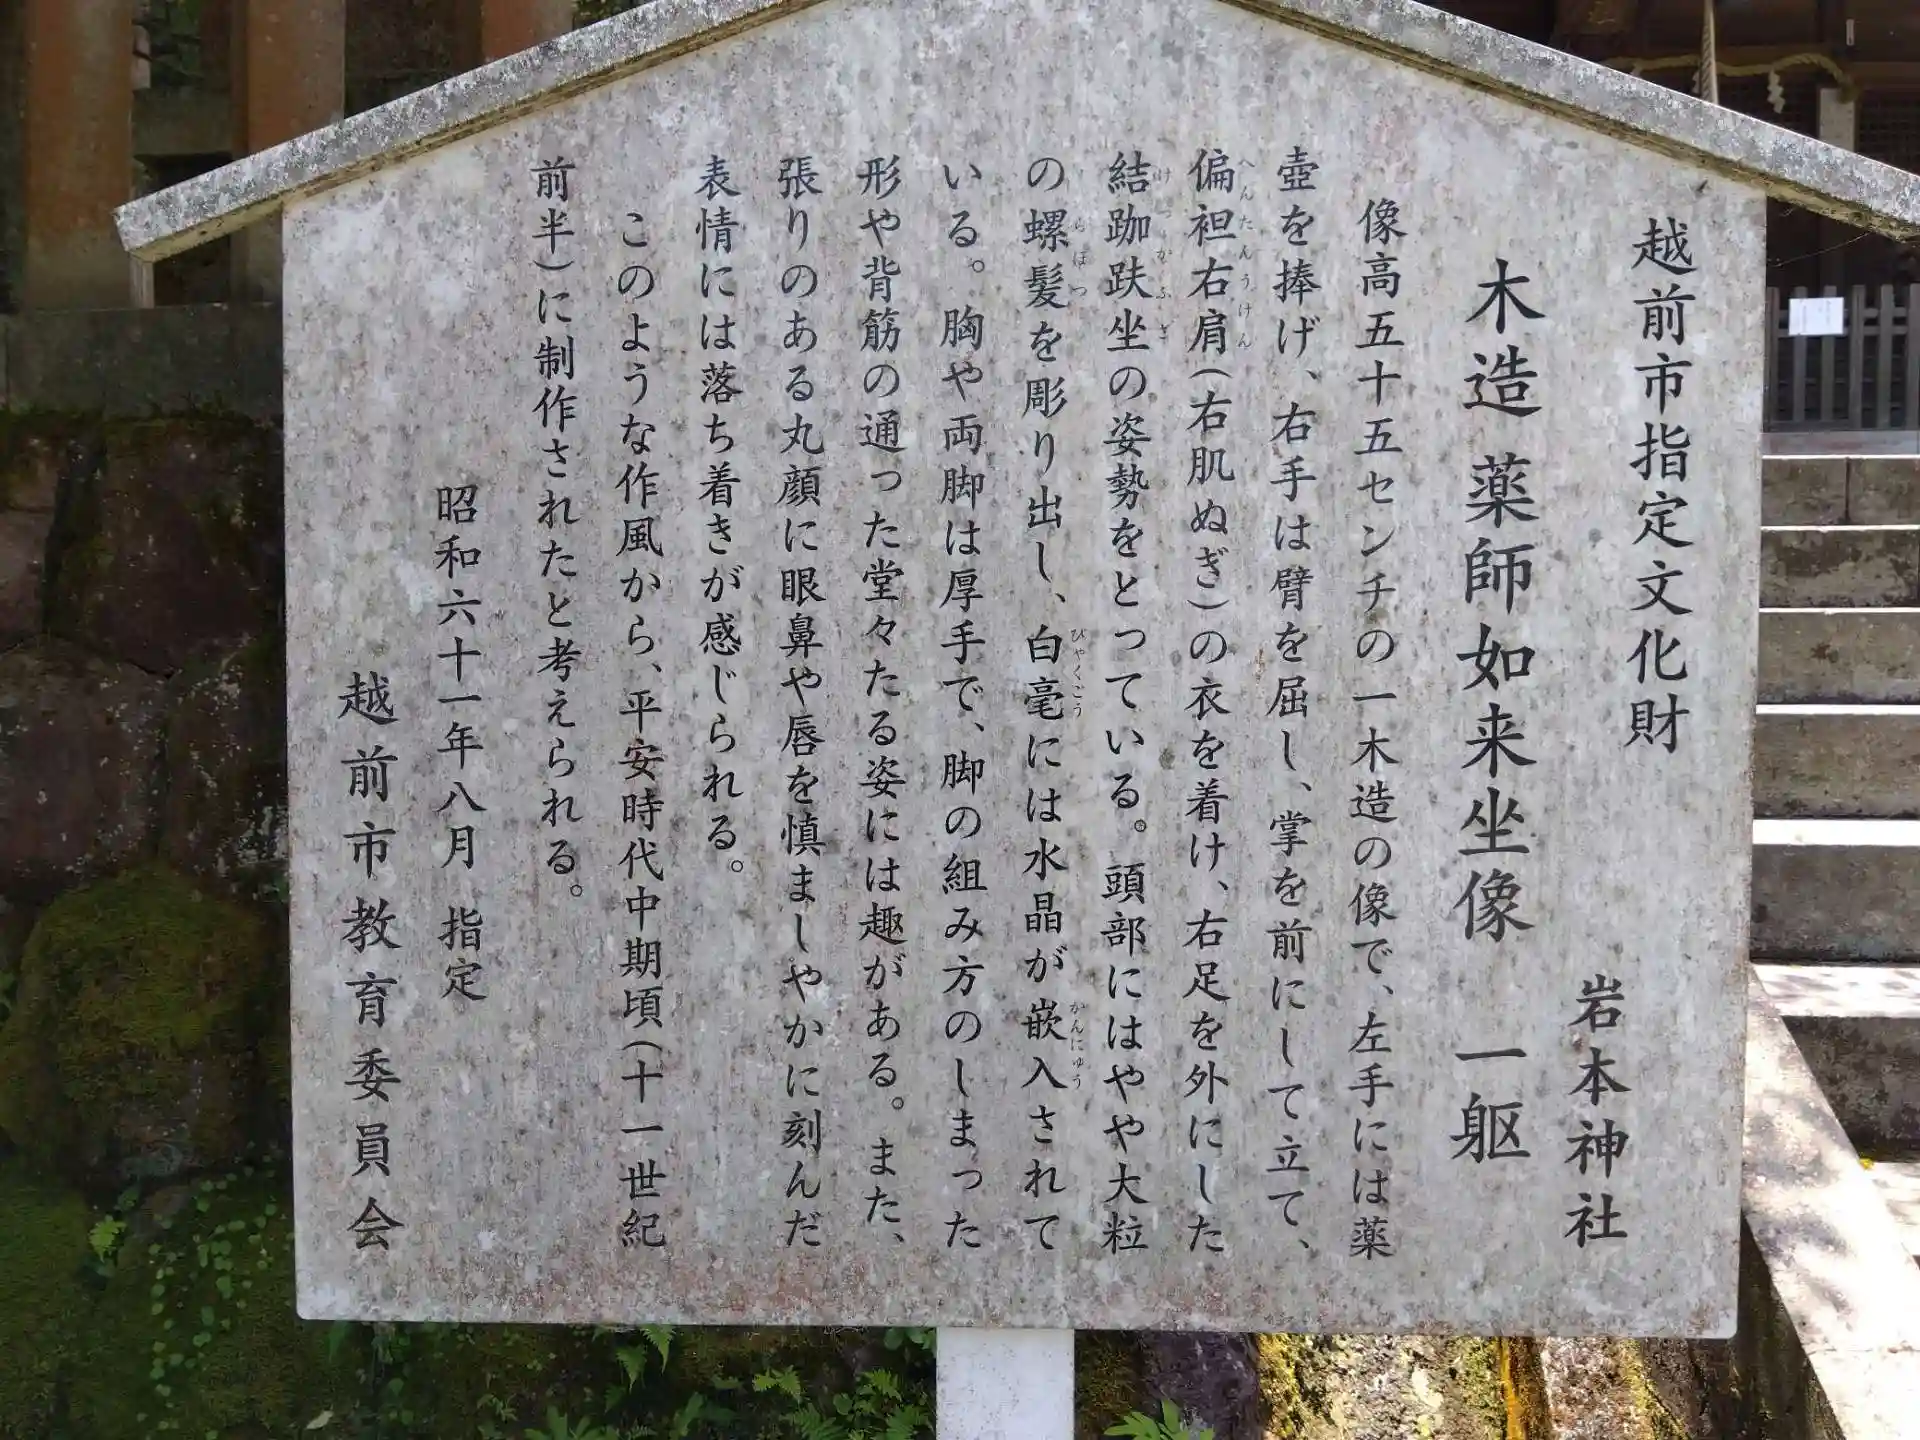 越前市指定文化財
岩本神社
木造薬師如来坐像　一躯
像高五十五センチの一木造の像で、左手には薬
壺を捧げ、右手は臂を屈し、掌を前にして立て、
偏袒右肩(右肌ぬぎ)の衣を着け、右足を外にした
へんたんうけん
結跏趺坐の姿勢をとっている。頭部にはやや大粒
けっかふざ
の螺髪を彫り出し、白毫には水晶が嵌入されて
らほつ　びゃくごう　かんにゅう
いる。胸や両脚は厚手で、脚の組み方のしまった
形や背筋の通った堂々たる姿には趣がある。また、
張りのある丸顔に眼鼻や唇を慎ましやかに刻んだ
表情には落ち着きが感じられる。
このような作風から、平安時代中期頃(十一世紀
前半)に制作されたと考えられる。
昭和六十一年八月　指定
越前市教育委員会